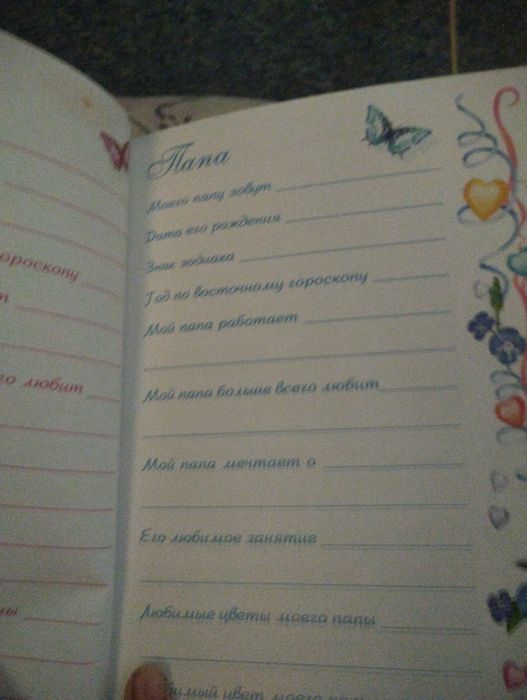 ороскопу
любит
Папа
Моего папу зовут
Дата его рождения
Знак зодиака
Год по восточному гороскопу
Мой папа работает
Мой папа больше всего любит
Мой папа мечтает о
Его любимое занятие
Любимые цветы моего папы
цвет моего